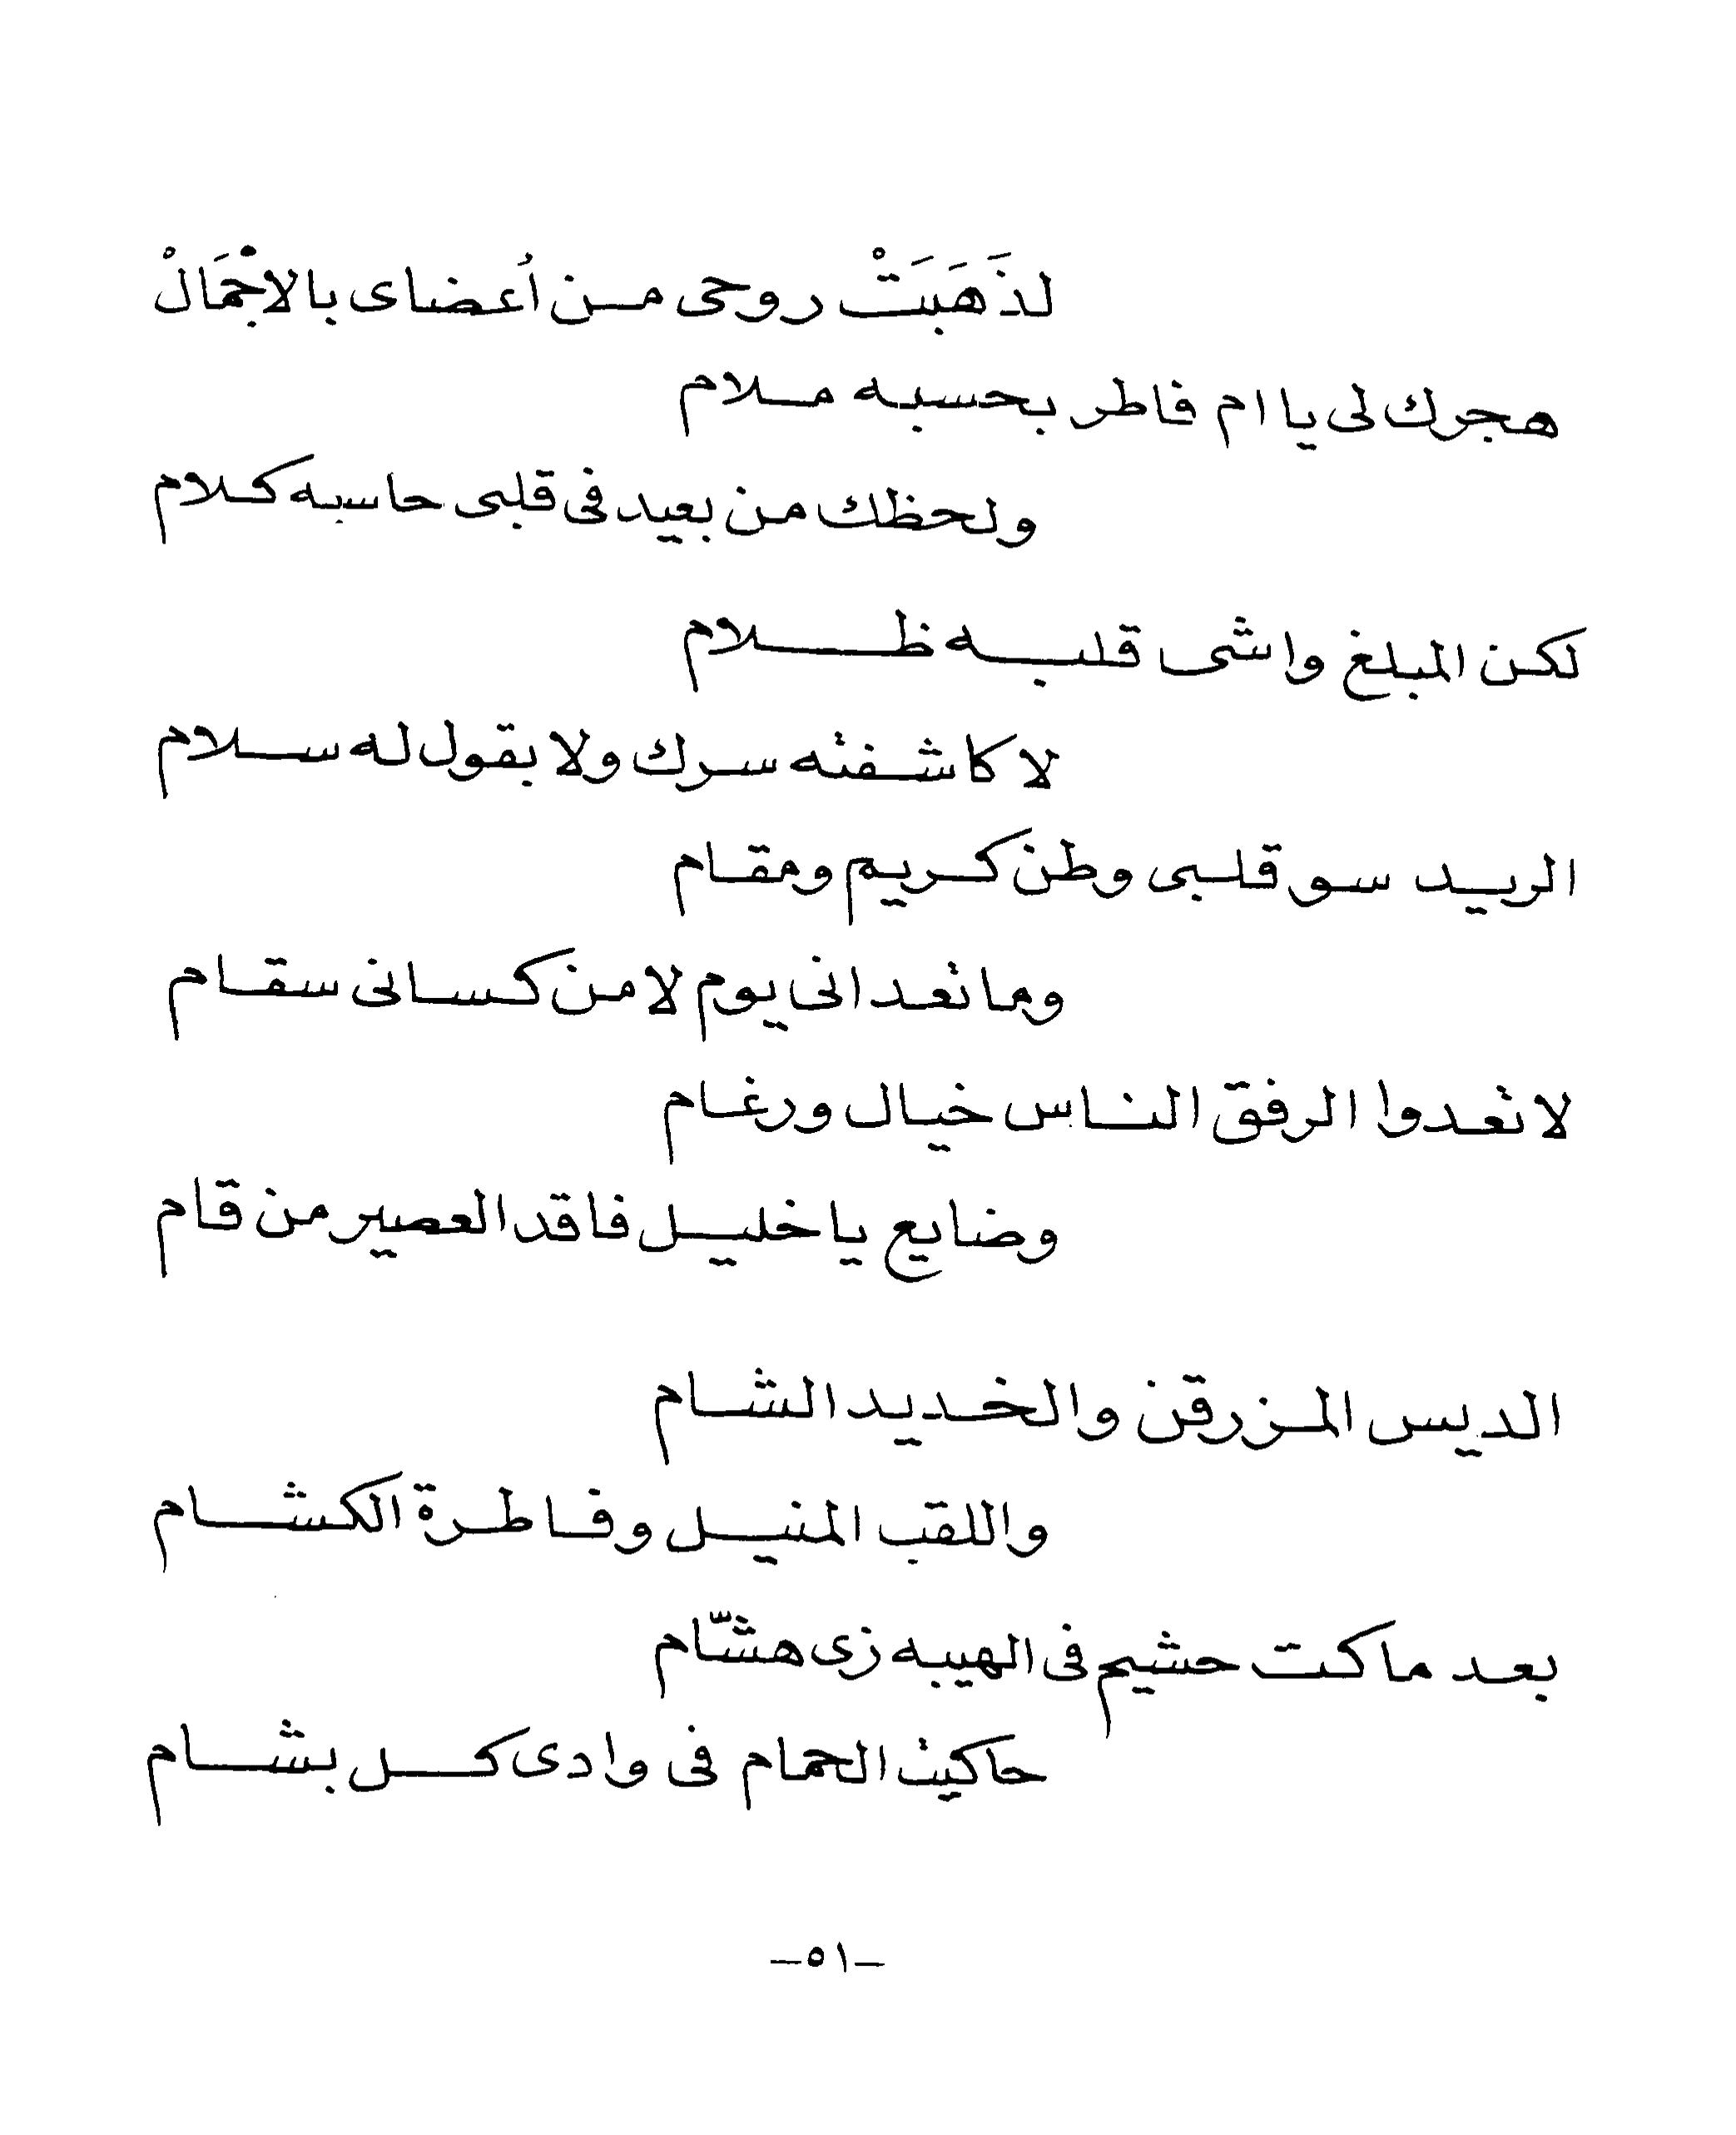 لذَهَبَتْ روحى مـن أعضاى بالاجْمَالْ
هجرك لى يا ام فاطر بحسبه مـلام
ولحظك من بعيد فى قلبى حاسبه كلام
لكن المبلغ واشى قلبـه ظـلام
لا كاشفته سرك ولا بقول له سـلام
الريـد سو قلبى وطن كريم ومقام
وما تعدانى يوم لا من كسانى سقام
لا تعدوا الرفق الناس خيال ورغام
وضايع يا خليل فاقد العصير من قام
الديس المزرقن والخديد الشام
واللقب المنيل وفاطرة الكشام
بعد ما كت حشيم فى الهيبه زى هشّام
حاكيت الحمام فى وادى كـل بشام
–٥١–